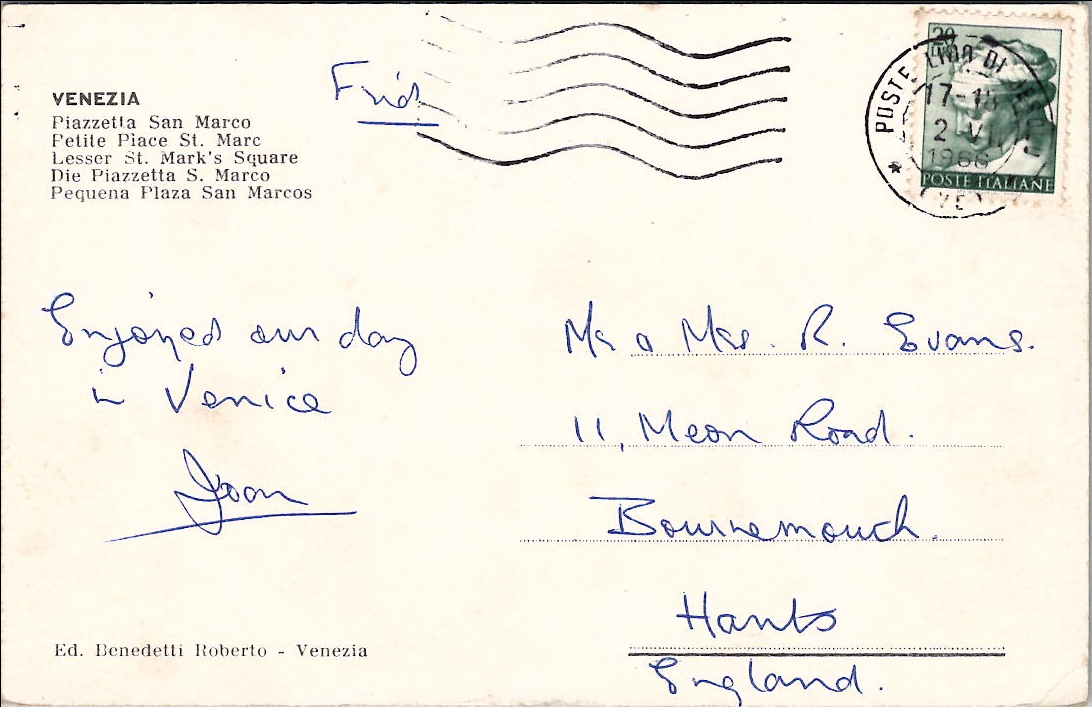 VENEZIA
Piazzetta San Marco
Petite Piace St. Marc
Lesser St. Mark's Square
Die Piazzetta S. Marco
Pequena Plaza San Marcos
Frid
POSTE LIDO DI
17-18
2 V
1966
(VE)
20
POSTE ITALIANE
Enjoyed our day
in Venice
Joan
Mr & Mrs. R. Evans.
11, Meon Road.
Bournemouth.
Hants
England.
Ed. Benedetti Roberto - Venezia